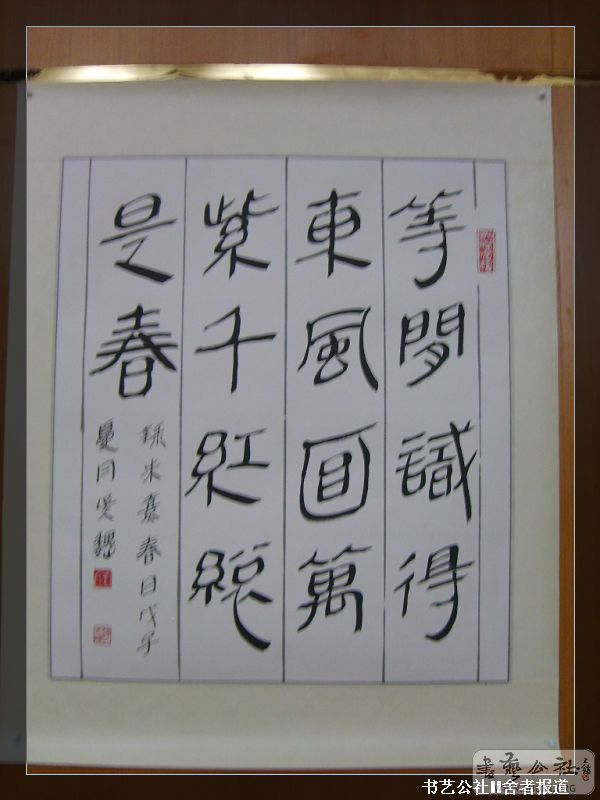 等閒識得
東風面萬
紫千紅總
是春
錄朱熹春日戊子
夏月
書藝公社
书艺公社II舍者报道